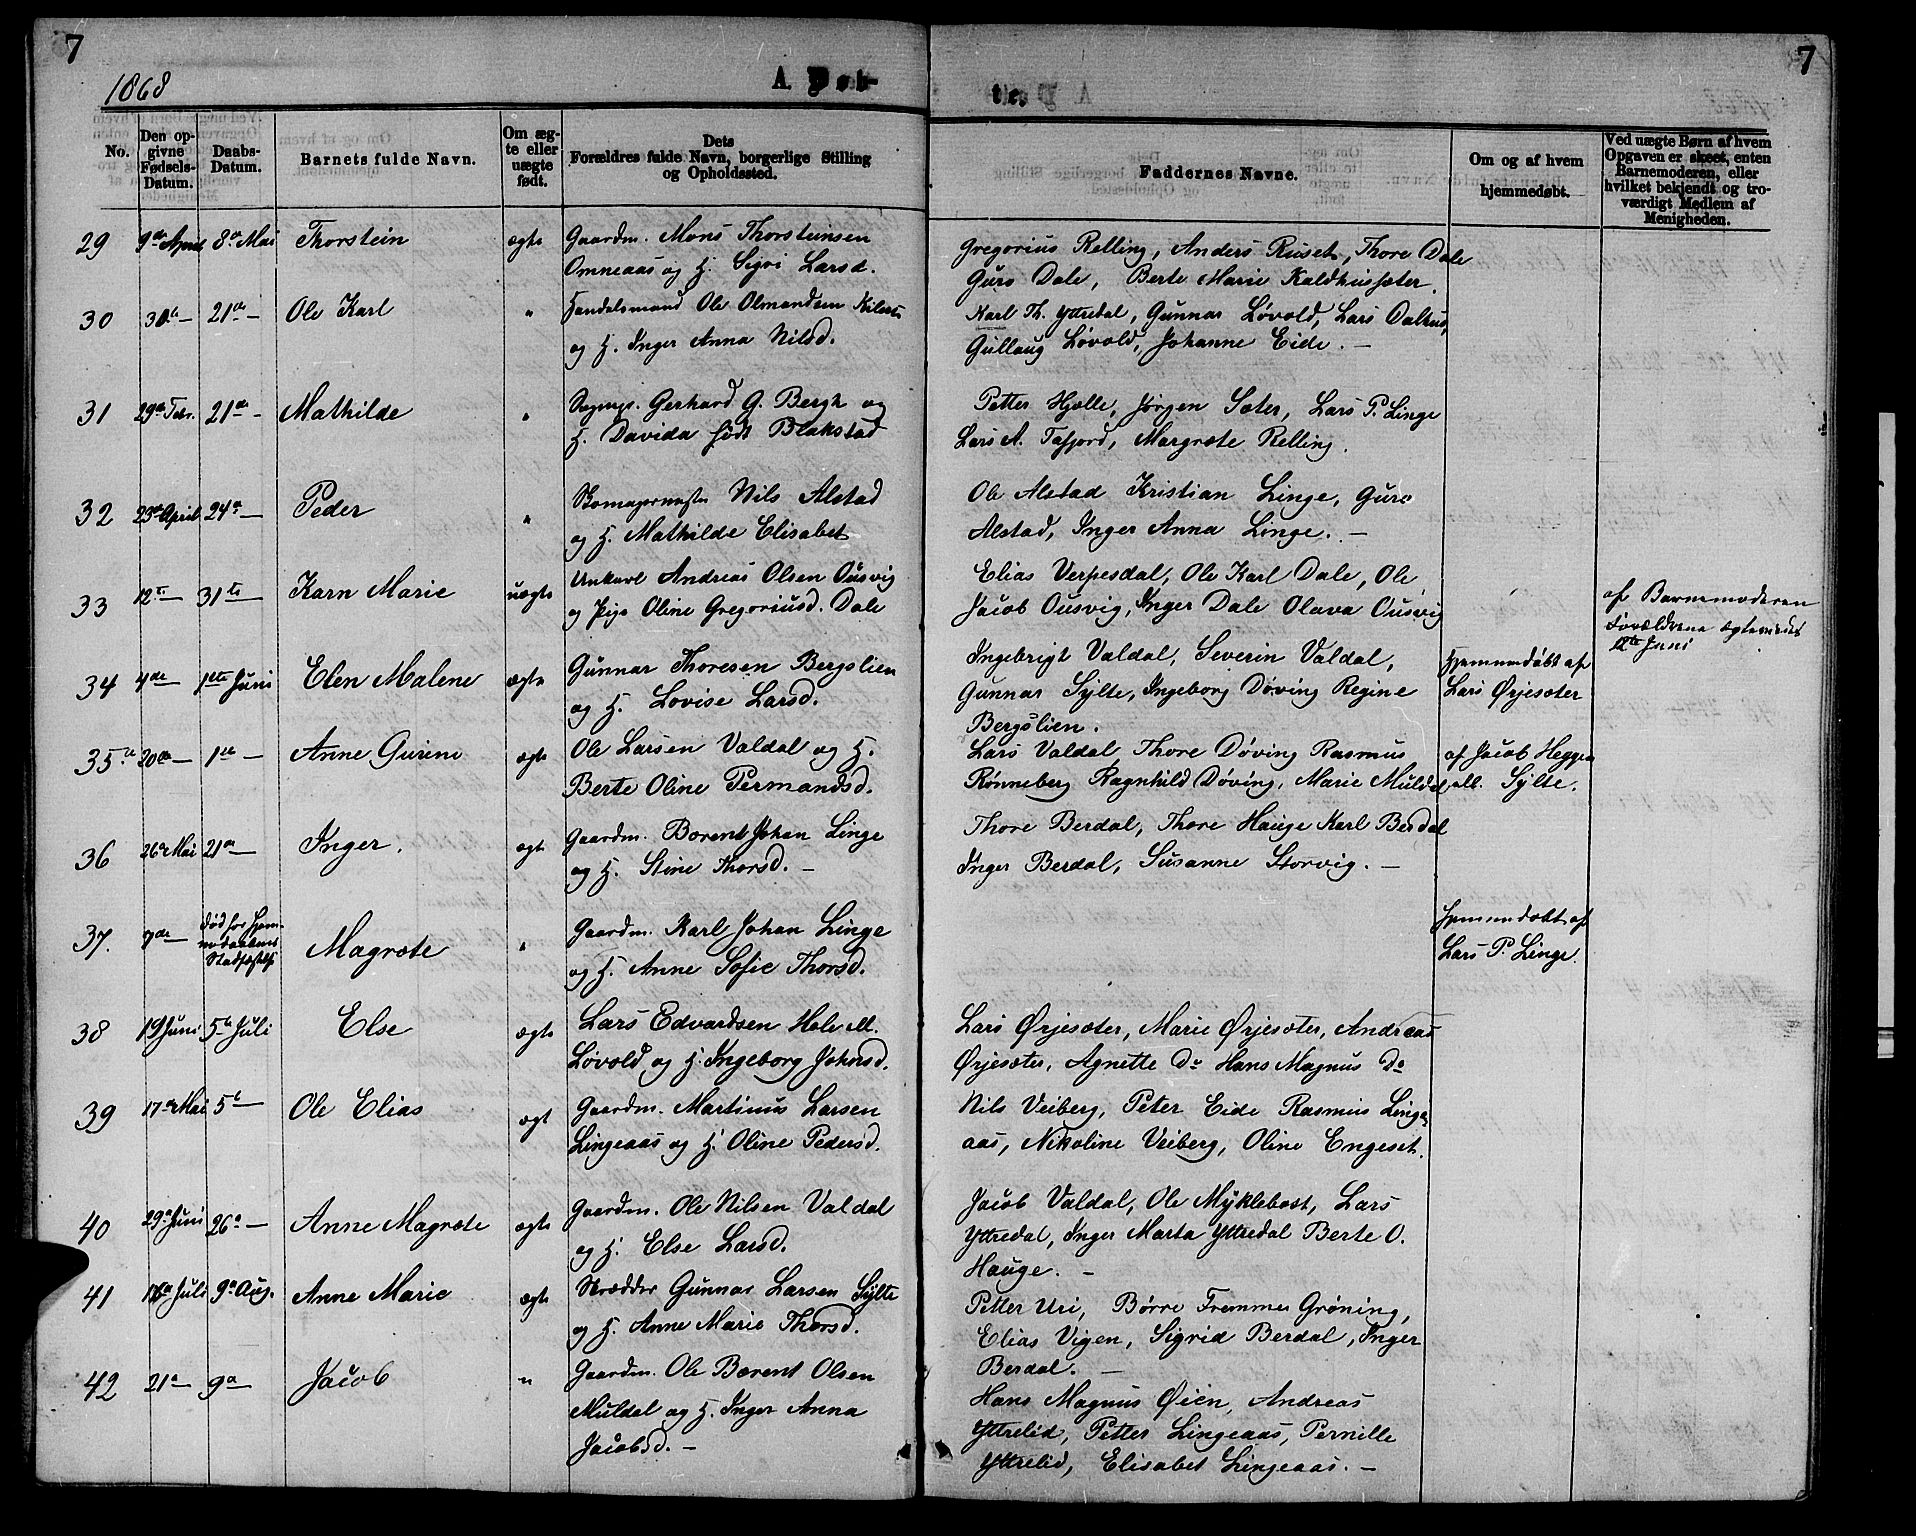 7
7
1868
A Døb-
te.
No.
Den op-
givne
Fødsels-
Datum.
Daabs-
Datum.
Barnets fulde Navn.
Om æg-
te eller
uægte
født.
Dets
Forældres fulde Navn, borgerlige Stilling
og Opholdssted.
Faddernes Navne.
Om og af hvem
hjemmedøbt.
Ved uægte Børn af hvem
Opgaven er skeet, enten
Barnemoderen, eller
hvilket bekjendt og tro-
værdigt Medlem af
Menigheden.
29 9de April 8de Mai Thorstein ægte Gaardm. Mons Thorsteinsen
Omneaas og H. Sigri Larsd.
Gregorius Relling, Anders Ruset, Thore Dale
Guro Dale, Berte Marie Kaldhussæter.
30 30te — 21de — Ole Karl " Handelsmand Ole Olmandsen
og H. Inger Anna Nilsd.
Karl Th. Yttredal, Gunnar Løvold, Lars Dalhus,
Gullaug Løvold, Johanne Eide. —
31 29de Febr. 21de — Mathilde " Gerhard G. Bergh og
H. Davida født Blakstad
Petter Hjelle, Jørgen Sæter, Lars P. Linge
Lars A. Tafjord, Margrete Relling.
32 23de April 24de — Peder " Skomagermester Nils Alstad
og H. Mathilde Elisabet
Ole Alstad Kristian Linge, Guro
Alstad, Inger Anna Linge. —
33 12te — 31te — Karn Marie uægte Unkarl Andreas Olsen Ousvig
og Pige Oline Gregoriusd. Dale
Elias Verpesdal, Ole Karl Dale, Ole
Jacob Ousvig, Inger Dale Olava Ousvig
af Barnemoderen
Forældrene ægteviede
12te Juni
34 4de — 1ste Juni Elen Malene ægte Gunnar Thoresen Bergslien
og H. Lovise Larsd.
Ingebrigt Valdal, Severin Valdal,
Gunnar Sylte, Ingeborg Døving Regine
Bergslien.
Hjemmedøbt af
Lars Ørjesæter
35 20de — 1ste — Anne Gurine ægte Ole Larsen Valdal og H.
Berte Oline Permandsd.
Lars Valdal Thore Døving Rasmus
Rønneberg Ragnhild Døving, Marie Muldal
af Jacob Heggen
all. Sylte.
36 26de Mai 21de — Inger. ægte Gaardm. Berent Johan Linge
og H. Stine Thorsd. —
Thore Berdal, Thore Hauge Karl Berdal
Inger Berdal, Susanne Storvig. —
37. 7de — død før Hjem-
medaabens
Stadfæstelse Magrete " Gaardm. Karl Johan Linge
og H. Anne Sofie Thorsd.
Hjemmedøbt af
Lars P. Linge.
38 19 Juni 5te Juli Else ægte Lars Edvardsen Hole M.
Løvold og H. Ingeborg Johnsd.
Lars Ørjesæter, Marie Ørjesæter, Andreas
Ørjesæter, Agnette Do Hans Magnus Do
39 17de Mai 5te — Ole Elias ægt Gaardm. Martinus Larsen
Lingeaas og H. Oline Pedersd.
Nils Veiberg, Peter Eide Rasmus Linge
aas, Nikoline Veiberg, Oline Engeset.
40 29de Juni 26de — Anne Magrete ægte Gaardm. Ole Nilsen Valdal
og H. Else Larsd.
Jacob Valdal, Ole Myklebost, Lars
Yttredal, Inger Marta Yttredal Berte O.
Hauge. —
41 Juli 9de Aug. Anne Marie ægte Skrædder Gunnar Larsen Sylte
og H. Anne Marie Thorsd.
Petter Uri, Børre Fremmer Grøning,
Elias Vigen, Sigrid Berdal, Inger
Berdal. —
42 21de — 9de — Jacob " Gaardm. Ole Berent Olsen
Muldal og H. Inger Anna
Jacobsd. —
Hans Magnus Øien, Andreas
Yttrelid, Petter Lingeaas, Pernille
Yttrelid, Elisabet Lingeaas. —